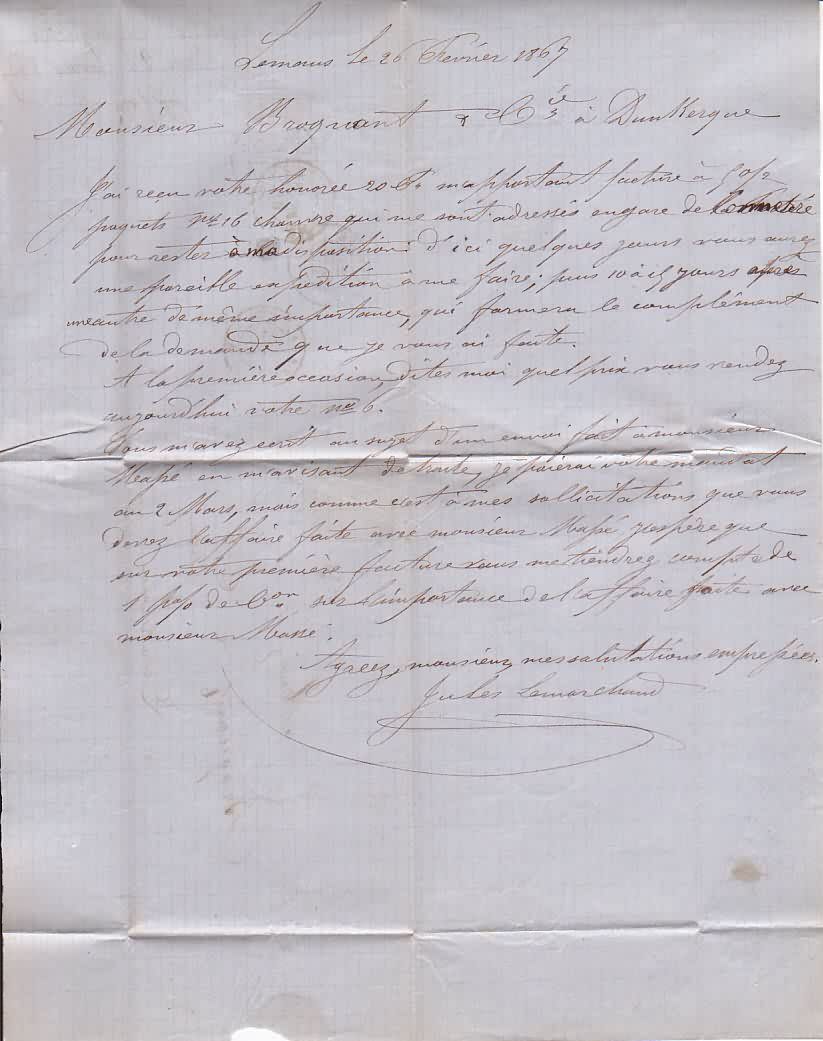 Lemans le 26 Février 1867
Monsieur Broquant & Cie à Dunkerque
J'ai reçu votre honorée 20 Ct m'apportant facture à
paquets No 16 chanvre qui me sont adressés en gare de
pour rester à ma disposition; d'ici quelques jours vous aurez
une pareille expédition à me faire; puis 10 à 15 jours après
une autre de même importance, qui formera le complément
de la demande que je vous ai faite.
A la première occasion, dites moi quel prix vous vendez
aujourd'hui votre no 6.
Vous m'avez écrit au sujet d'un envoi fait à monsieur
Massé en m'avisant de traite, je paierai votre mandat
au 2 Mars, mais comme c'est à mes sollicitations que vous
devez l'affaire faite avec monsieur Massé j'espère que
sur votre première facture vous me tiendrez compte de
1 p% de Con sur l'importance de l'affaire faite avec
monsieur Massé.
Agreez, monsieur, mes salutations empressées.
Jules Lemarchand